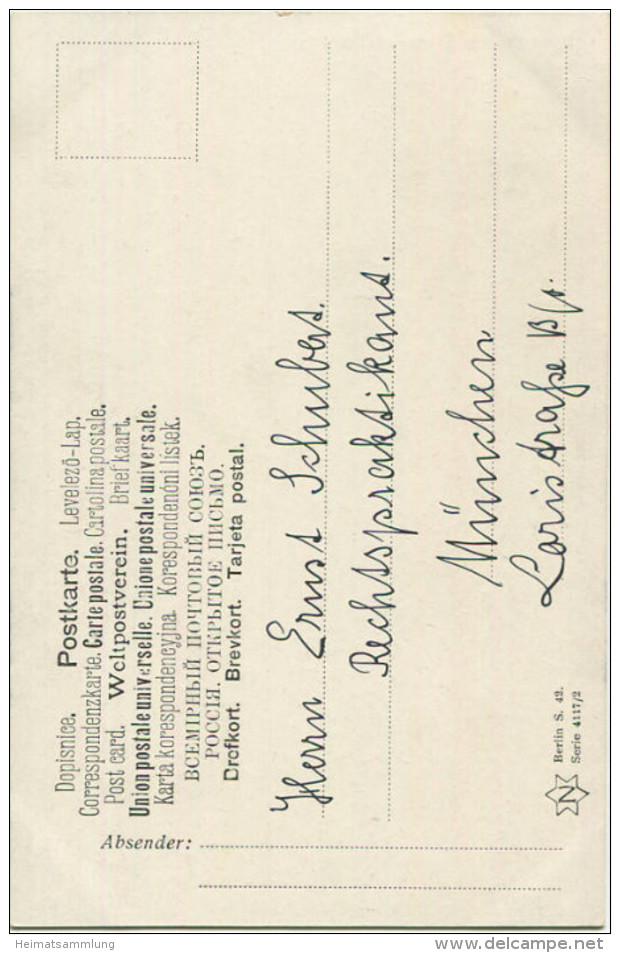 Dopisnice. Postkarte. Levelező-Lap.
Correspondenzkarte. Carte postale. Cartolina postale.
Post card. Weltpostverein. Briefkaart.
Union postale universelle. Unione postale universale.
Karta korespondencyjna. Korespondenční listek.
ВСЕМІРНЫЙ ПОЧТОВЫЙ СОЮЗЪ.
РОССІЯ. ОТКРЫТОЕ ПИСЬМО.
Brefkort. Brevkort. Tarjeta postal.
Herrn Ernst Schubert.
Rechtspraktikant.
München
Lorisstraße
Absender:
N
Berlin S. 42.
Serie 4117/2
Heimatsammlung
www.delcampe.net